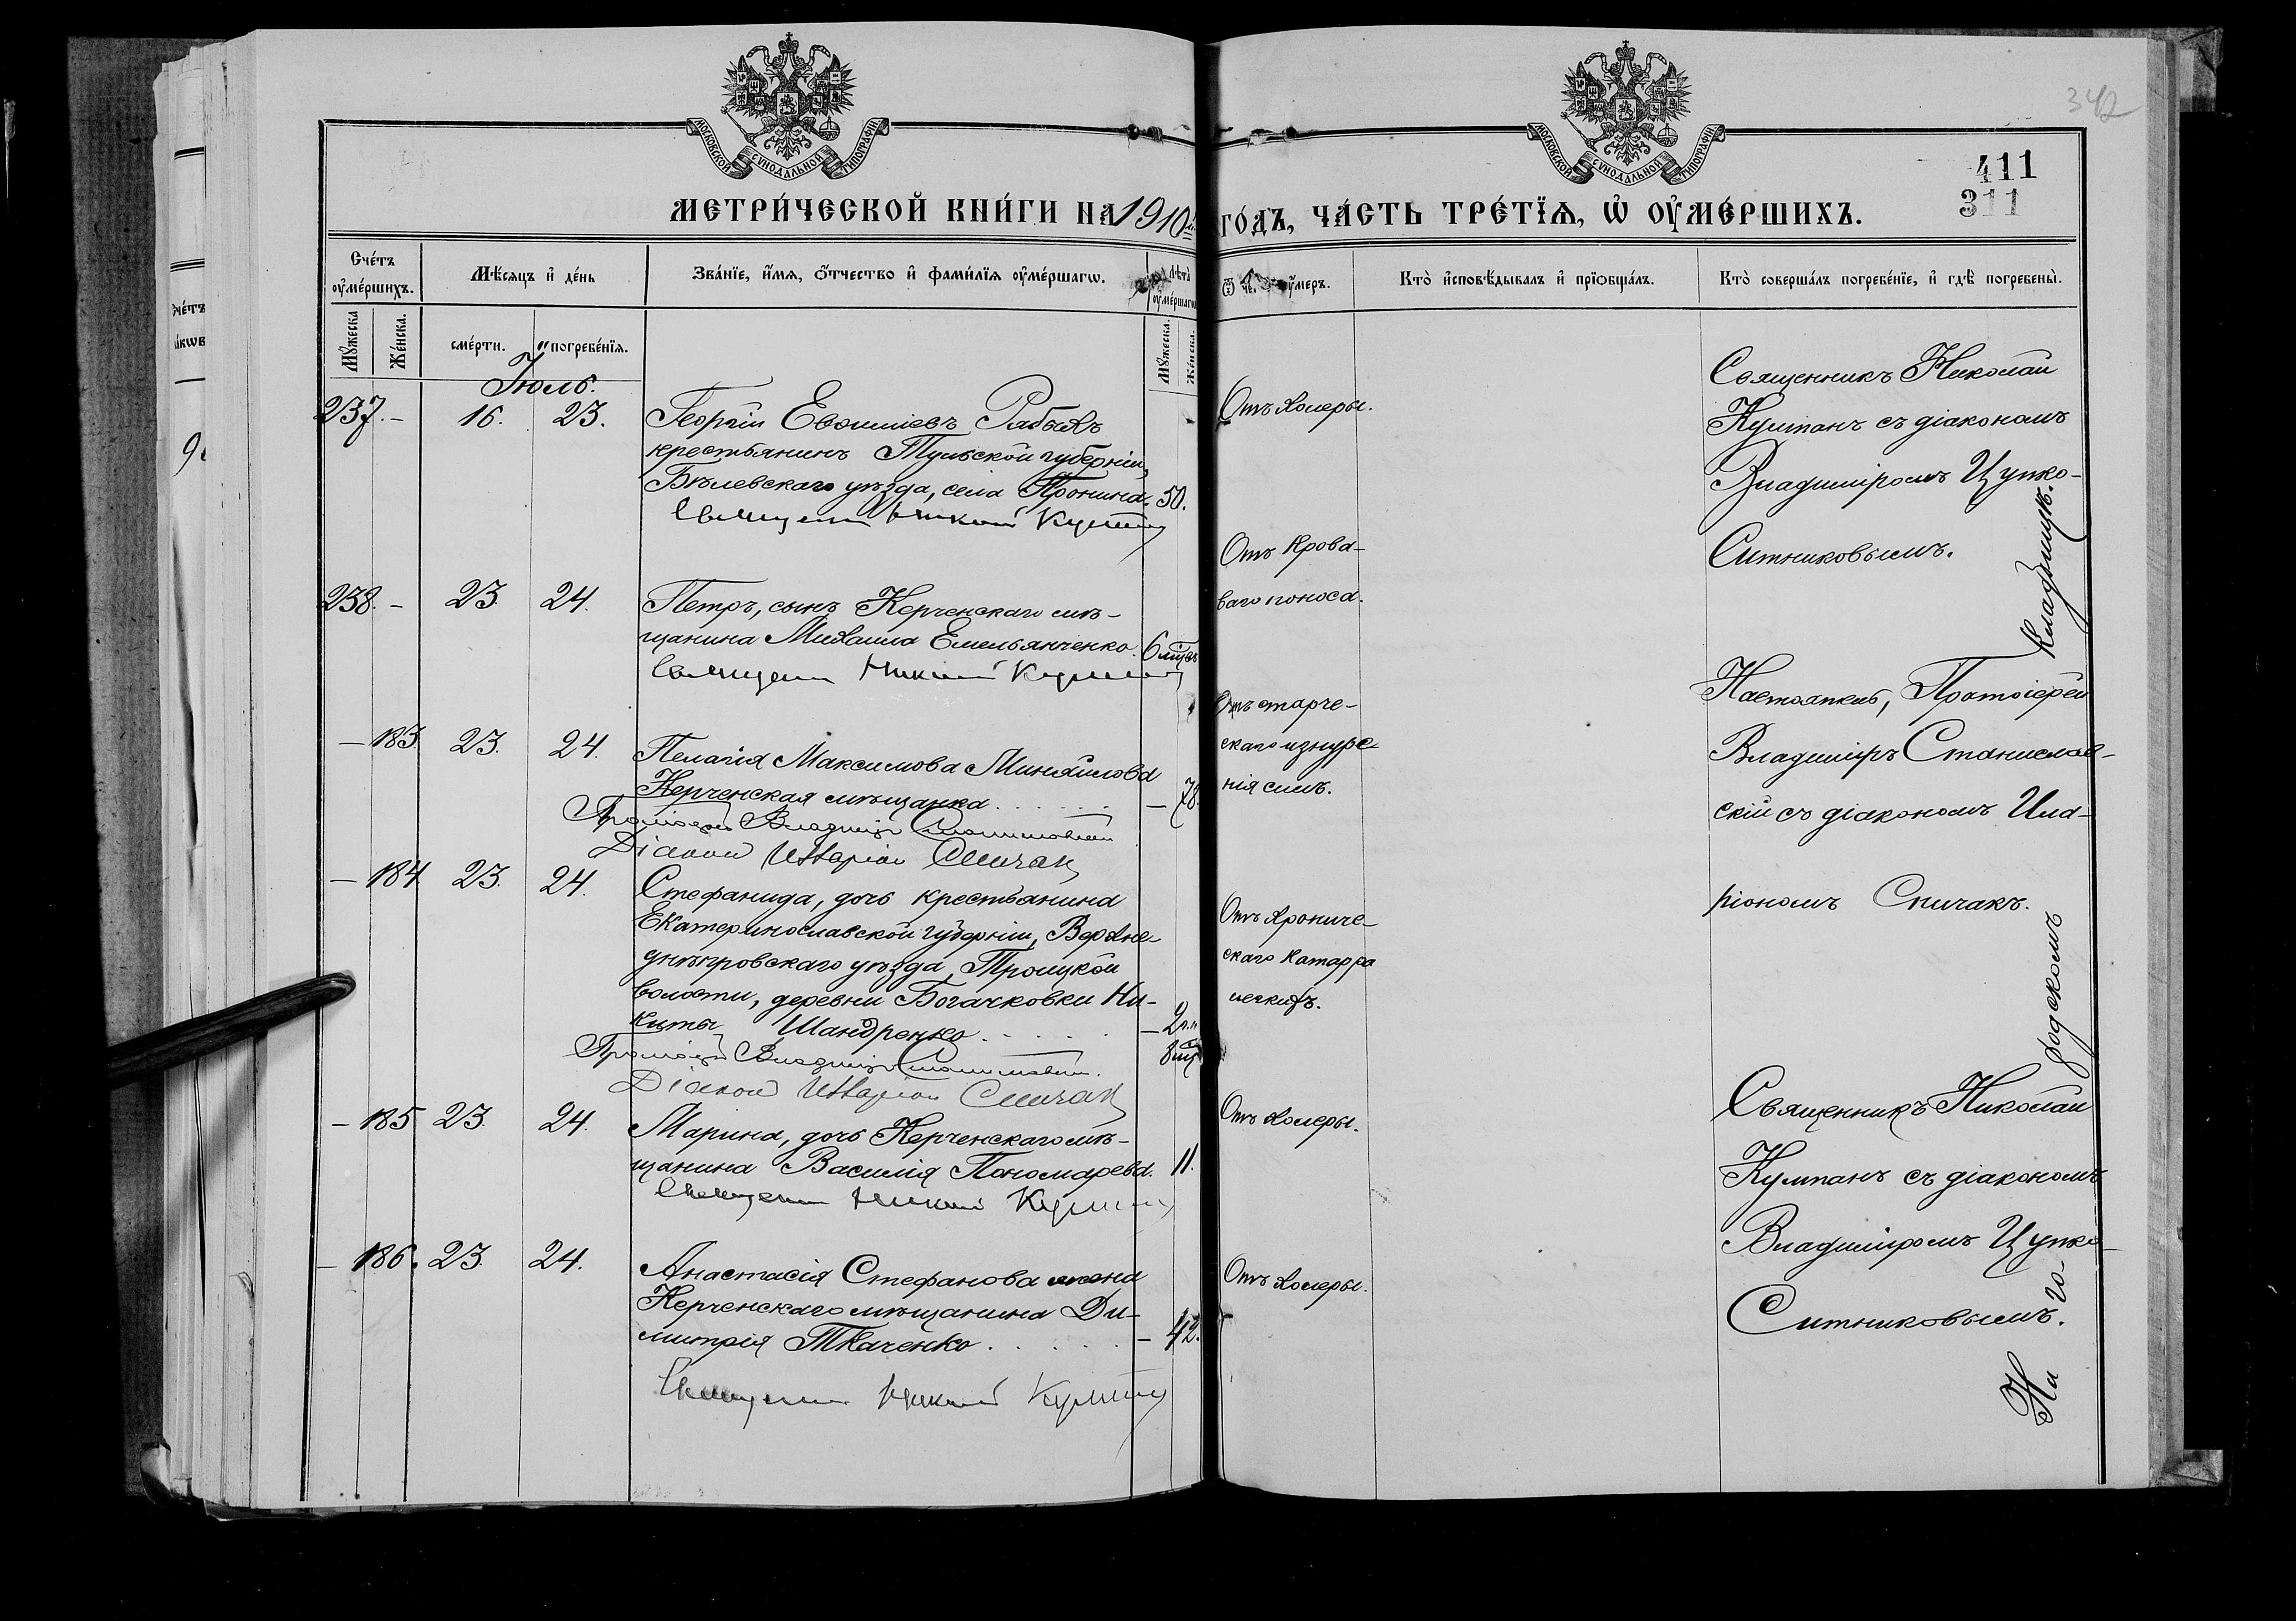 МОСКОВСКОЙ СѴНОДАЛЬНОЙ ТИПОГРАФІИ
МОСКОВСКОЙ СѴНОДАЛЬНОЙ ТИПОГРАФІИ
342
411
311
МЕТРИ́ЧЕСКОЙ КНИ́ГИ НА 1910 й
ГО́ДЪ, ЧА́СТЬ ТРЕ́ТЇѦ, Ѡ҆ ОУ҆МЕ́РШИХЪ.
Счéтъ оу҆мéршихъ.
Мѣ́сяцъ и҆ дéнь
Звáнїе, и҆́мя, ѻ҆́тчество и҆ фами́лїя оу҆мéршагѡ.
Лѣ́та оу҆мéршагѡ
оу҆́меръ.
Кто̀ и҆сповѣ́дывалъ и҆ прїѡбщáлъ.
Кто̀ совершáлъ погребéнїе, и҆ гдѣ̀ погребены̀.
Мꙋ́жеска
Жéнска.
смéрти.
погребéнїя.
Мꙋ́жеска.
Жéнска.
Іюль.
237. –
16.
23.
Георгій Евѳиміевъ Рябыхъ
крестьянинъ Тульской губерніи,
Бѣлевскаго уѣзда, села Пронина. 50.
Священ Никол Култан
Отъ холеры.
Священникъ Николай
Култанъ съ діакономъ
Владиміромъ Цупко-
Ситниковымъ.
238. –
23.
24.
Петръ, сынъ Керченскаго мѣ-
щанина Михаила Емельянченко. 6 мѣс
Священ Никол Култан
Отъ крова-
ваго поноса.
– 183.
23.
24.
Пелагія Максимова Миняйлова
Керченская мѣщанка. . . . . . – 78.
Протоіерей Владимір Станиславскій
Діакон Иларіон Спичак
Отъ старче-
скаго изнуре-
нія силъ.
Настоятель, Протоіерей
Владиміръ Станислав-
скій съ діакономъ Ила-
ріономъ Спичакъ.
– 184
23.
24.
Стефанида, дочь крестьянина
Екатеринославской губерніи, Верхне-
днѣпровскаго уѣзда, Троицкой
волости, деревни Богачковки Ни-
киты Шандренко. . . . . – 2 г. и
8 мѣс
Протоіерей Владимір Станиславскій.
Діакон Иларіон Спичак
Отъ хрониче-
скаго катарра
легкихъ.
– 185
23.
24.
Марина, дочь Керченскаго мѣ-
щанина Василія Пономарева. 11.
Священ Никол Култан
Отъ холеры.
Священникъ Николай
Култанъ съ діакономъ
Владиміромъ Цупко-
Ситниковымъ.
– 186.
23.
24.
Анастасія Стефанова жена
Керченскаго мѣщанина Ди-
митрія Ткаченко. . . . . . – 42.
Священ Никол Култан
Отъ холеры.
На го-
родскомъ
кладбищѣ.